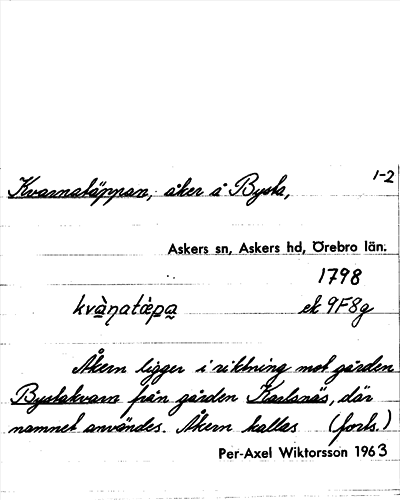 1-2
Kvarnatäppan, åker å Bysta,
Askers sn, Askers hd, Örebro län.
1798
kvà̱ṇatæp̱a̱ ek 9F8g
Åkern ligger i riktning mot gården
Bystakvarn från gården Karlsnäs, där
namnet användes. Åkern kallas (forts.)
Per-Axel Wiktorsson 1963